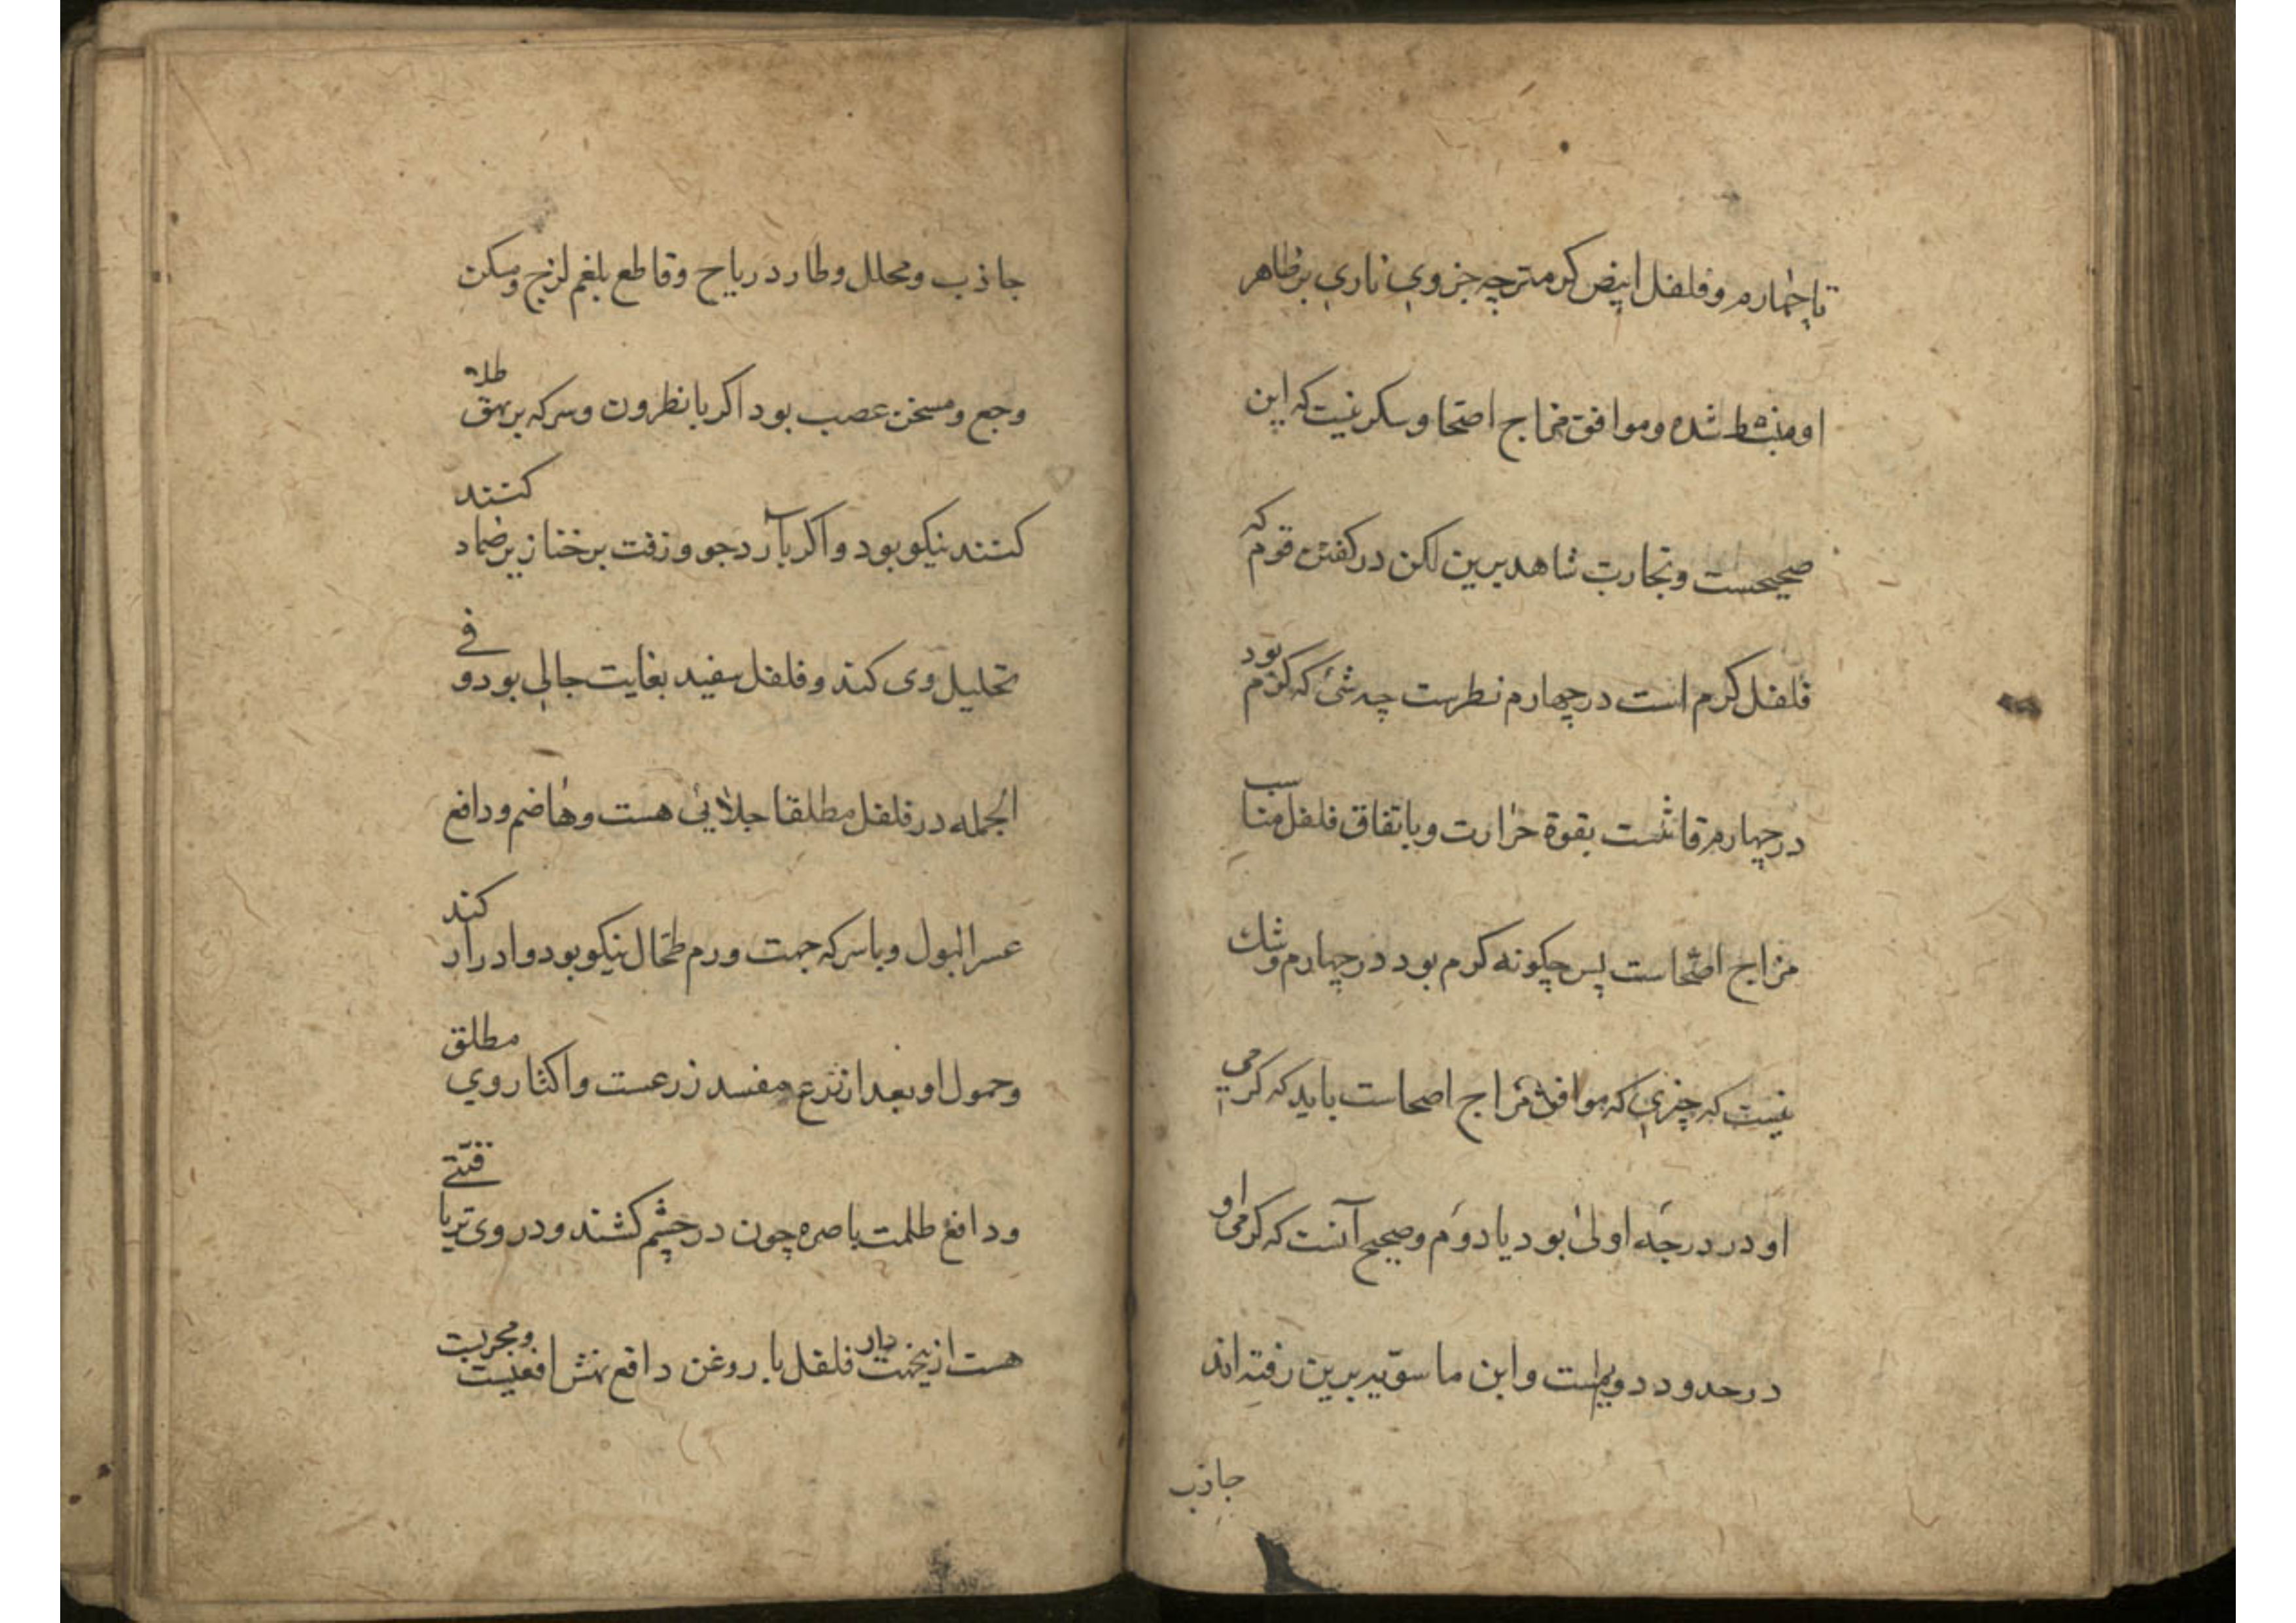 تا چهارم و فلفل ابیض کرمتر چه جزوي ناري بر ظاهر
او منبسط شده و موافق مزاج اصحا و سکر نیست که این
صحیحست و تجارب شاهد برین لکن در کفتن قوم که
فلفل کرم است در چهارم نظرست چه شئ که کرم بود
در چهارم قاتلست بقوة حرارت و باتفاق فلفل مناسب
مزاج اصحاست پس چکونه کرم بود در چهارم و شك
نیست که چیزي که موافق مزاج اصحاست باید که کرمي
او در درجه اولی بود یا دوم و صحیح آنست که کرمی او
در حدود دویم است و ابن ماسویه برین رفته اند
جاذب
جاذب و محلل و طارد ریاح و قاطع بلغم لزج و مسکن
وجع و مسخن عصب بود اکر با نطرون و سرکه بر بهق طلا
کنند نیکو بود و اکر با آرد جو و زفت بر خنازیر ضماد کنند
تحلیل وی کند و فلفل سفید بغایت جالی بود و في
الجمله در فلفل مطلقا جلایئ هست و هاضم و دافع
عسر البول و با سرکه جهت ورم طحال نیکو بود و ادرار کند
و حمول او بعد از نزع مفسد زرعست و اکثار وي مطلق
و دافع ظلمت باصره چون در چشم کشند و در وی تریاقیتے
هست ازینجهت فلفل با روغن دافع نهش افعیست و مجربست